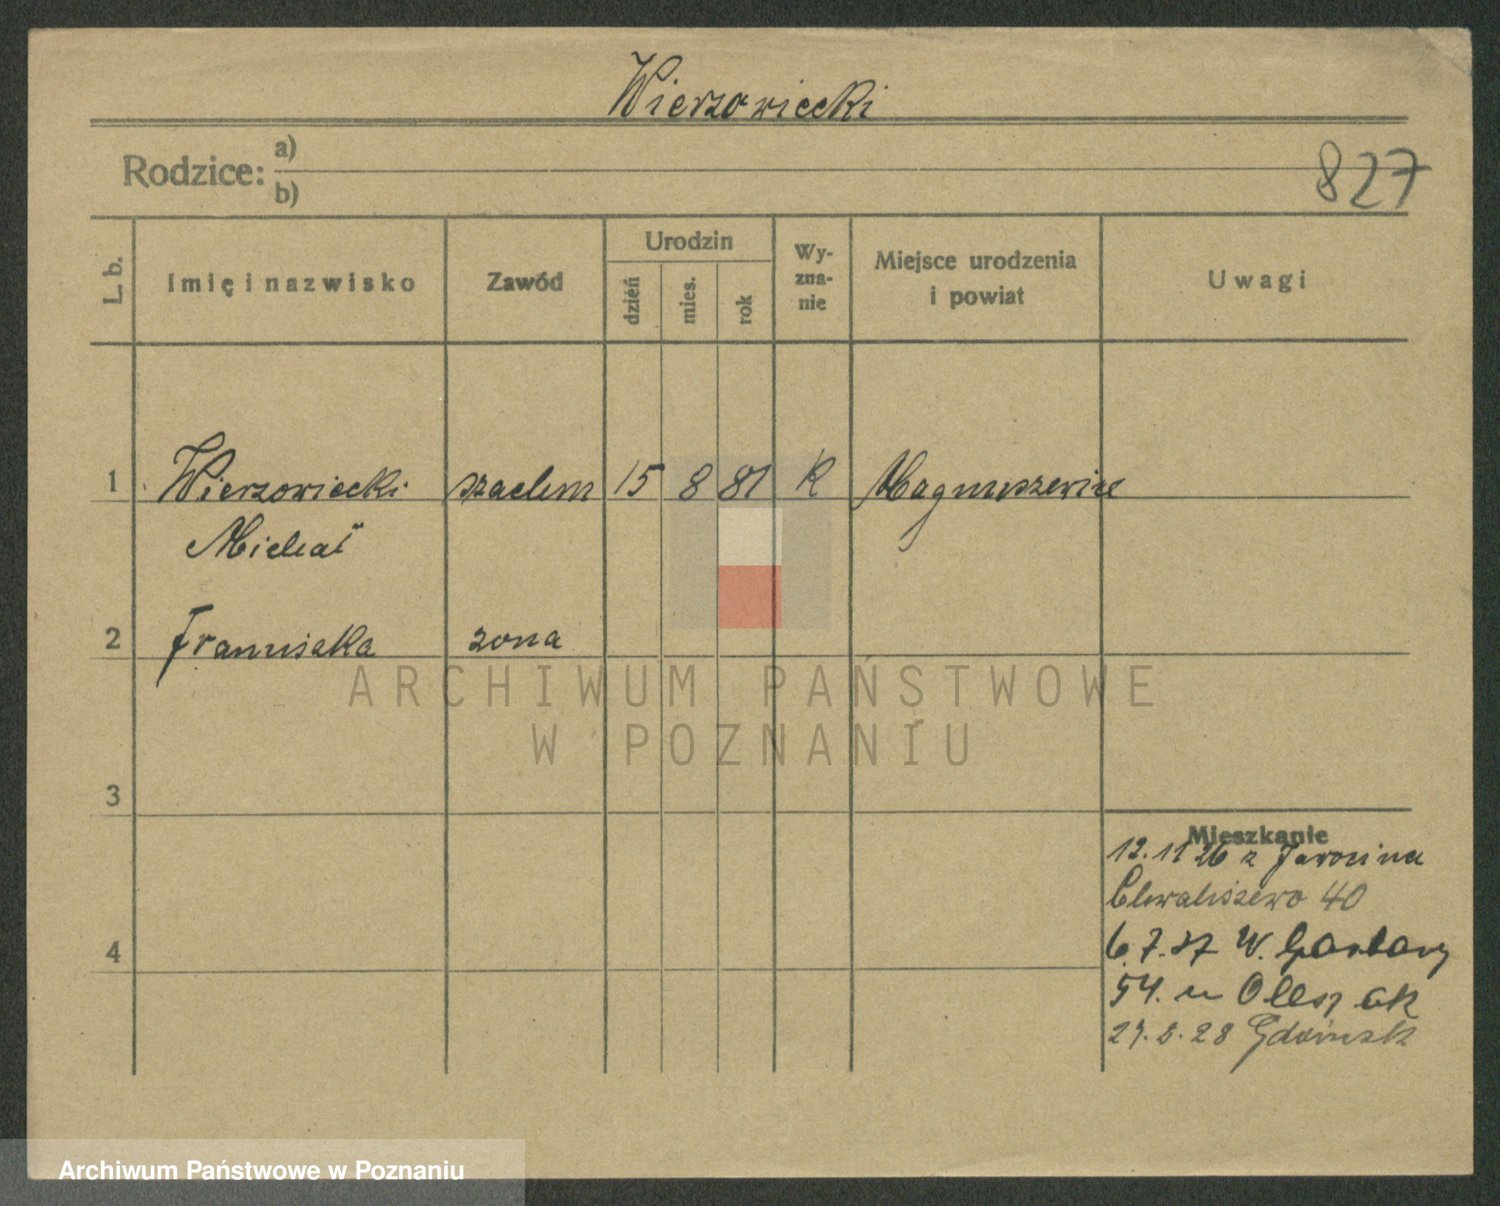 Wierzowiecki
Rodzice: a)
b)
827
L. b.
Imię i nazwisko
Zawód
Urodzin
dzień
mies.
rok
Wy-
zna-
nie
Miejsce urodzenia
i powiat
Uwagi
1 Wierzowiecki 15 8 81 K Magnuszewice
Michał
2 Franciszka zona
ARCHIWUM PAŃSTWOWE
W POZNANIU
3
Mieszkanie
12.11 26 z Jarocina
Chwaliszewo 40
4
6.7.27 W. Garbary
54. u Oleszak
27.2.28 Gdańsk
Archiwum Państwowe w Poznaniu